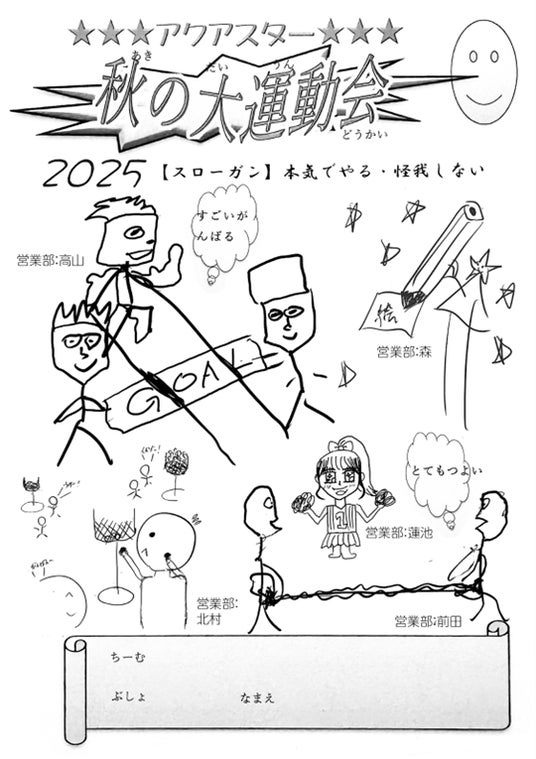 ★★★アクアスター★★★
あき だい うん
秋の大運動会
どうかい
2025 【スローガン】本気でやる・怪我しない
すごいが
んばる
営業部:高山
絵
営業部:森
GOAL!
とてもつよい
営業部:蓮池
営業部:
北村
営業部:前田
ちーむ
ぶしょ なまえ